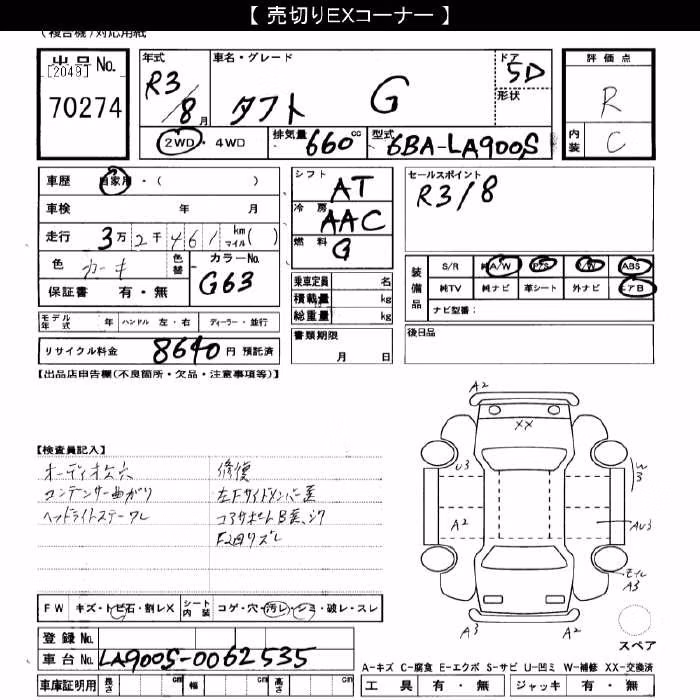 【 売切りEXコーナー 】
(複合機)対応用紙
出品No.
[2049]
70274
年式 R3/8月
車名・グレード タフト G
ドア 5D
形状
2WD・4WD
排気量 660cc
型式 6BA-LA900S
評価点 R
内装 C
車歴 自家用・( )
車検 年 月
走行 3万2千461km マイル( )
色 カーキ 色替
カラーNo. G63
保証書 有・無
モデル年式 年 ハンドル 左・右 ディーラー・並行
リサイクル料金 8640円 預託済
シフト AT
冷房 AAC
燃料 G
乗車定員 名
積載量 kg
総重量 kg
書類期限 月 日
セールスポイント
R3/8
装備品 S/R 純A/W P/S P/W ABS
純TV 純ナビ 革シート 外ナビ エアB
ナビ型番:
後日品
【出品店申告欄(不良箇所・欠品・注意事項等)】
【検査員記入】
オーディオ欠穴
コンデンサー曲がり
ヘッドライトステーワレ
修復
左Fサイドメンバー歪
コアサポートB歪、シワ
F2回リズレ
A2
XX
U3
W3
A2
AU3
モイル
A3
A3
A2
スペア
FW キズ・トビ石・割レX シート内装 コゲ・穴・汚レ・シミ・破レ・スレ
登録No.
車台No. LA900S-0062535
車庫証明用 長さ cm 幅 cm 高さ cm
A-キズ C-腐食 E-エクボ S-サビ U-凹ミ W-補修 XX-交換済
工具 有・無 ジャッキ 有・無